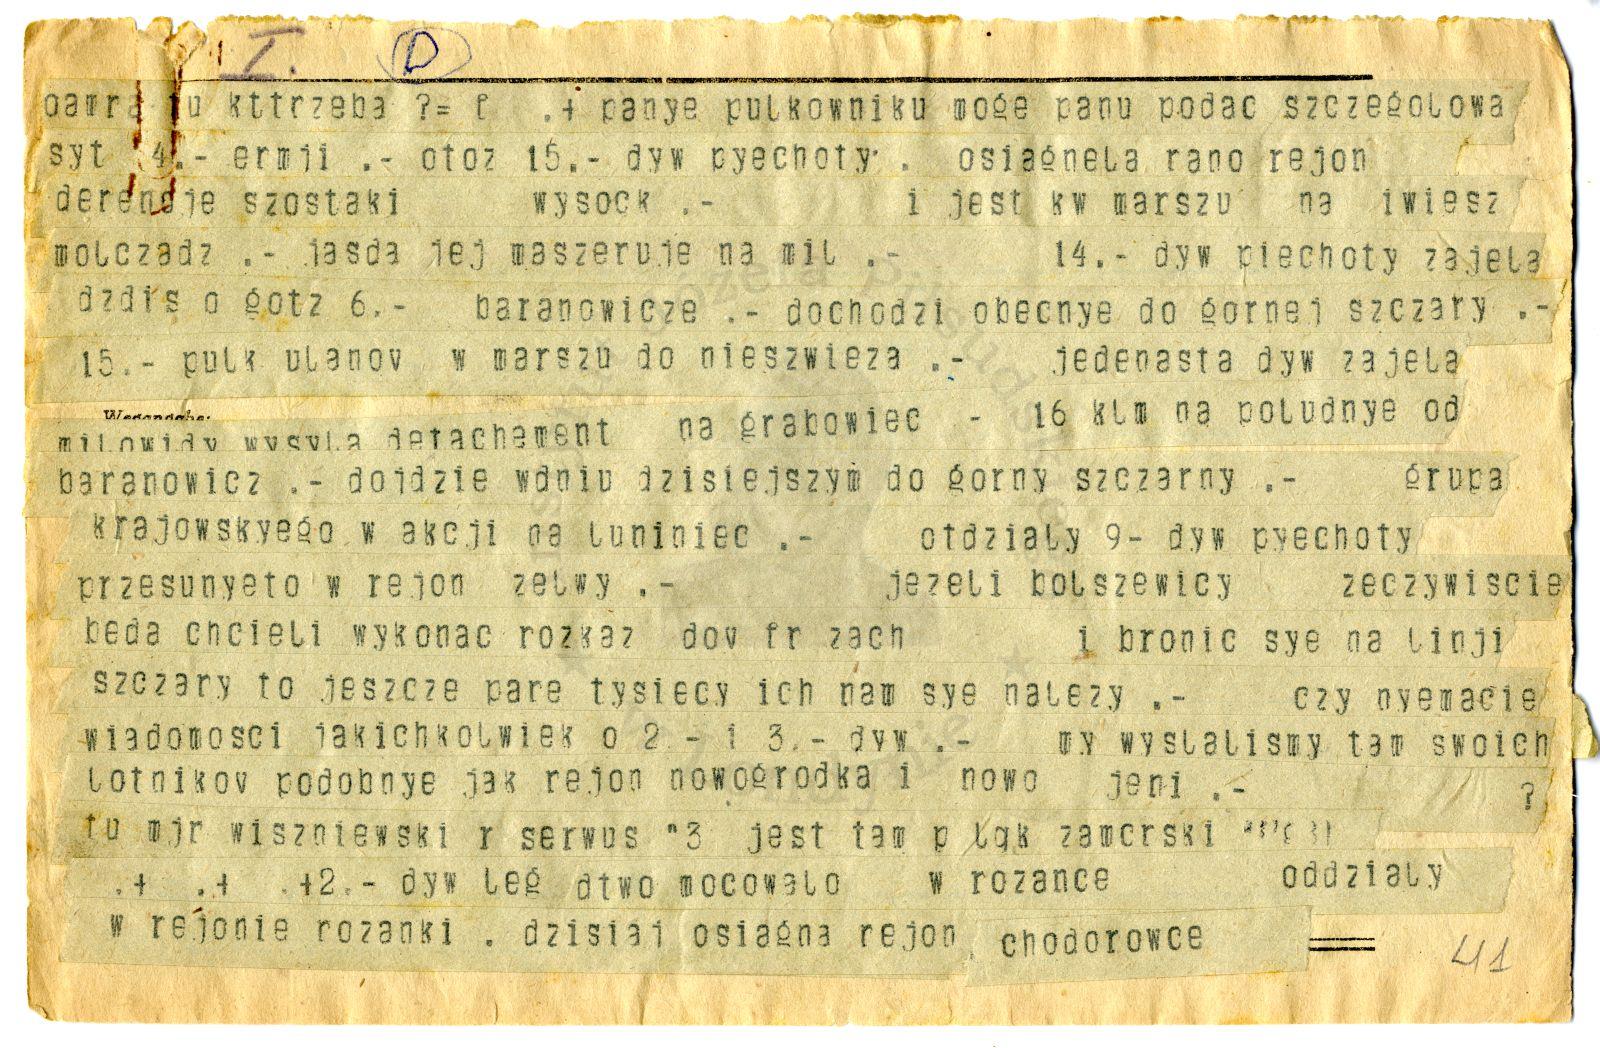 I. D
oamra tu kttrzeba ?= f .+ panye pulkowniku moge panu podac szczegolowa
syt 4.- ermji .- otoz 15.- dyw pyechoty . osiagnela rano rejon
derenoje szostaki wysock .- i jest kw marszu na iwiesz
molczadz .- jasda jej maszeruje na mil .- 14.- dyw piechoty zajela
dzdis o gotz 6.- baranowicze .- dochodzi obecnye do gornej szczary .-
15.- pulk ulanov w marszu do nieszwieza .- jedenasta dyw zajela
milowidy wysyla detachement na grabowiec - 16 klm na poludnye od
baranowicz .- dojdzie wdniu dzisiejszym do gorny szczarny .- grupa
krajowskyego w akcji na luniniec .- otdzialy 9- dyw pyechoty
przesunyeto w rejon zelwy .- jezeli bolszewicy zeczywiscie
beda chcieli wykonac rozkaz dov fr zach i bronic sye na linji
szczary to jeszcze pare tysiecy ich nam sye nalezy .- czy nyemacie
wiadomosci jakichkolwiek o 2.- i 3.- dyw .- my wyslalismy tam swoich
lotnikov podobnye jak rejon nowogrodka i nowo jeni .- ?
tu mjr wiszniewski r serwus "3 jest tam p lqk zamorski
.+ .+ .+2.- dyw leg dtwo mocowalo w rozance oddzialy
w rejonie rozanki . dzisiaj osiagna rejon chodorowce
41